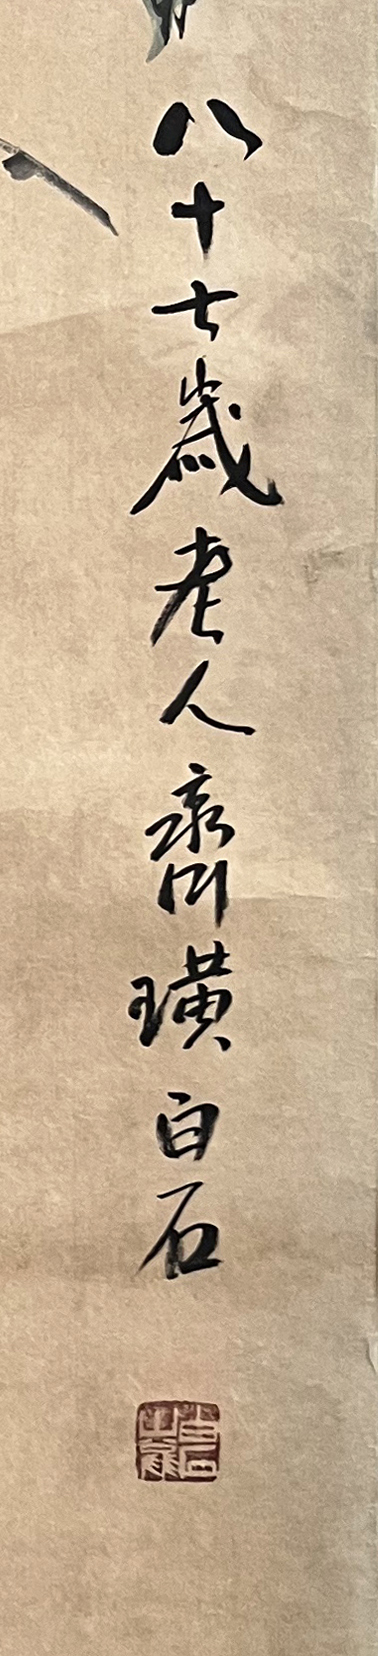 八十七歲老人齊璜白石